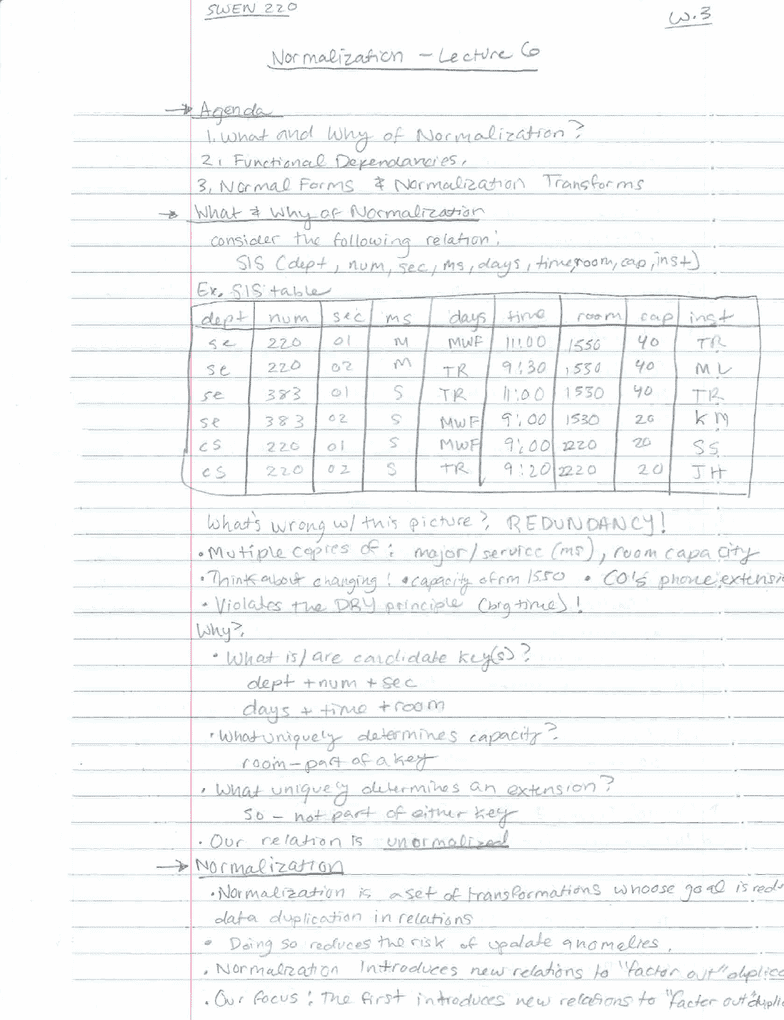 SWEN 220
W.3
Normalization - Lecture 6
→ Agenda
1. What and Why of Normalization?
2. Functional Dependancies.
3. Normal Forms & Normalization Transforms
→ What & Why of Normalization
consider the following relation:
SIS (dept, num, sec, ms, days, time, room, cap, inst)
Ex. SIS table
dept num sec ms days time room cap inst
se 220 01 M MWF 11:00 1550 40 TR
se 220 02 M TR 9:30 1550 40 ML
se 383 01 S TR 11:00 1530 40 TR
se 383 02 S MWF 9:00 1530 20 KM
cs 220 01 S MWF 9:00 2220 20 SS
cs 220 02 S TR 9:20 2220 20 JH
What's wrong w/ this picture? REDUNDANCY!
• Mutiple copies of: major/service (ms), room capacity
• Think about changing! • capacity of rm 1550 • CO's phone extensi
• Violates the DRY principle (big time)!
Why?
• What is/are candidate key(s)?
dept + num + sec
days + time + room
• What uniquely determines capacity?
room - part of a key
• What uniquely determines an extension?
so - not part of either key
• Our relation is unormalized
→ Normalization
• Normalization is a set of transformations whoose goal is redu
data duplication in relations
• Doing so reduces the risk of update anomalies.
• Normalization Introduces new relations to "factor out" duplica
• Our focus: The first introduces new relations to "factor out" dupli